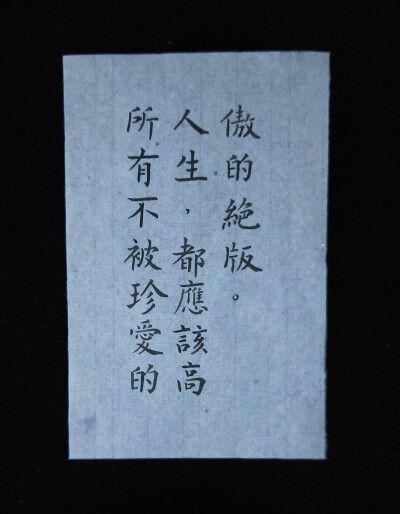 所有不被珍愛的
人生，都應該高
傲的絕版。